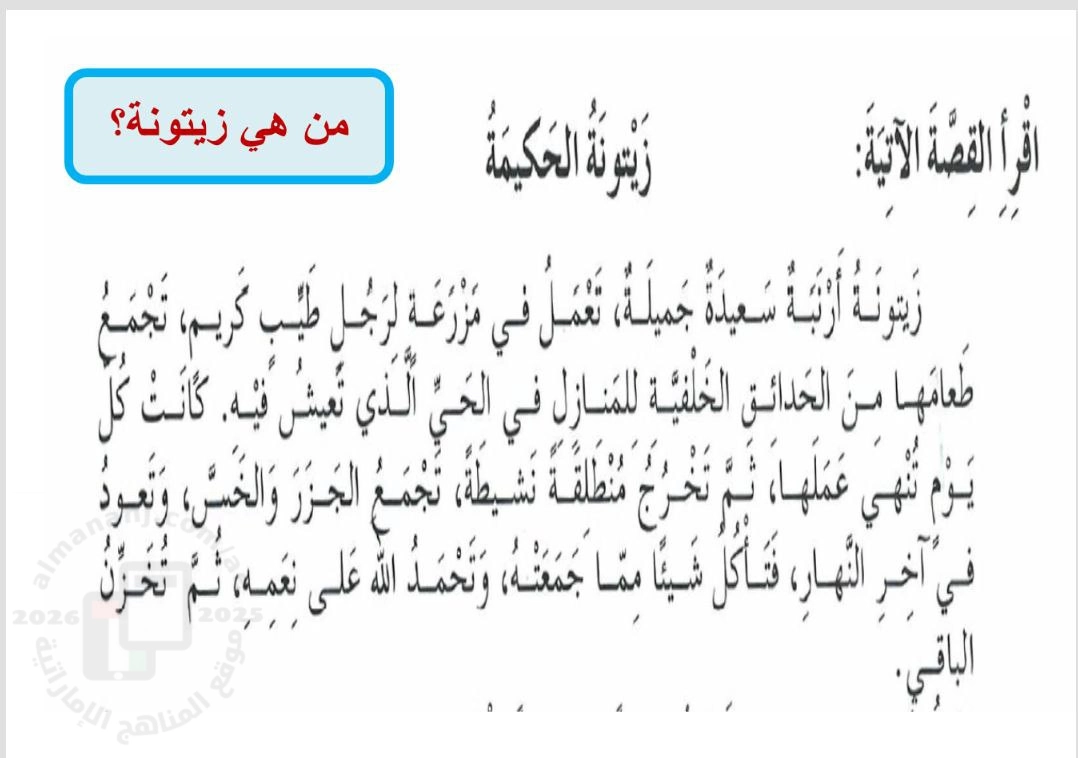 من هي زيتونة؟
اقْرَأِ القِصَّةَ الآتِيَةَ:
زَيْتونَةُ الحَكيمَةُ
زَيتونَةُ أَرْنَبَةٌ سَعيدَةٌ جَميلَةٌ، تَعْمَلُ في مَزْرَعَة لرَجُلٍ طَيِّبٍ كَريم، تَجْمَعُ
طَعامَها منَ الحَدائق الخَلْفيَّة للمَنازل في الحَيِّ الَّذي تَعيشُ فيْه. كَانَتْ كُلَّ
يَوْمٍ تُنْهي عَمَلَها، ثُمَّ تَخْرُجُ مُنْطَلِقَةً نَشيطَةً، تَجْمَعُ الجَزَرَ وَالخَسَّ، وَتَعودُ
في آخِرِ النَّهارِ، فَتَأْكُلُ شَيئًا مِمّا جَمَعَتْهُ، وَتَحْمَدُ الله عَلى نِعَمِهِ، ثُمَّ تُخَزِّنُ
الباقي.
almanahj.com/ae
2026 2025
موقع المناهج الإماراتية